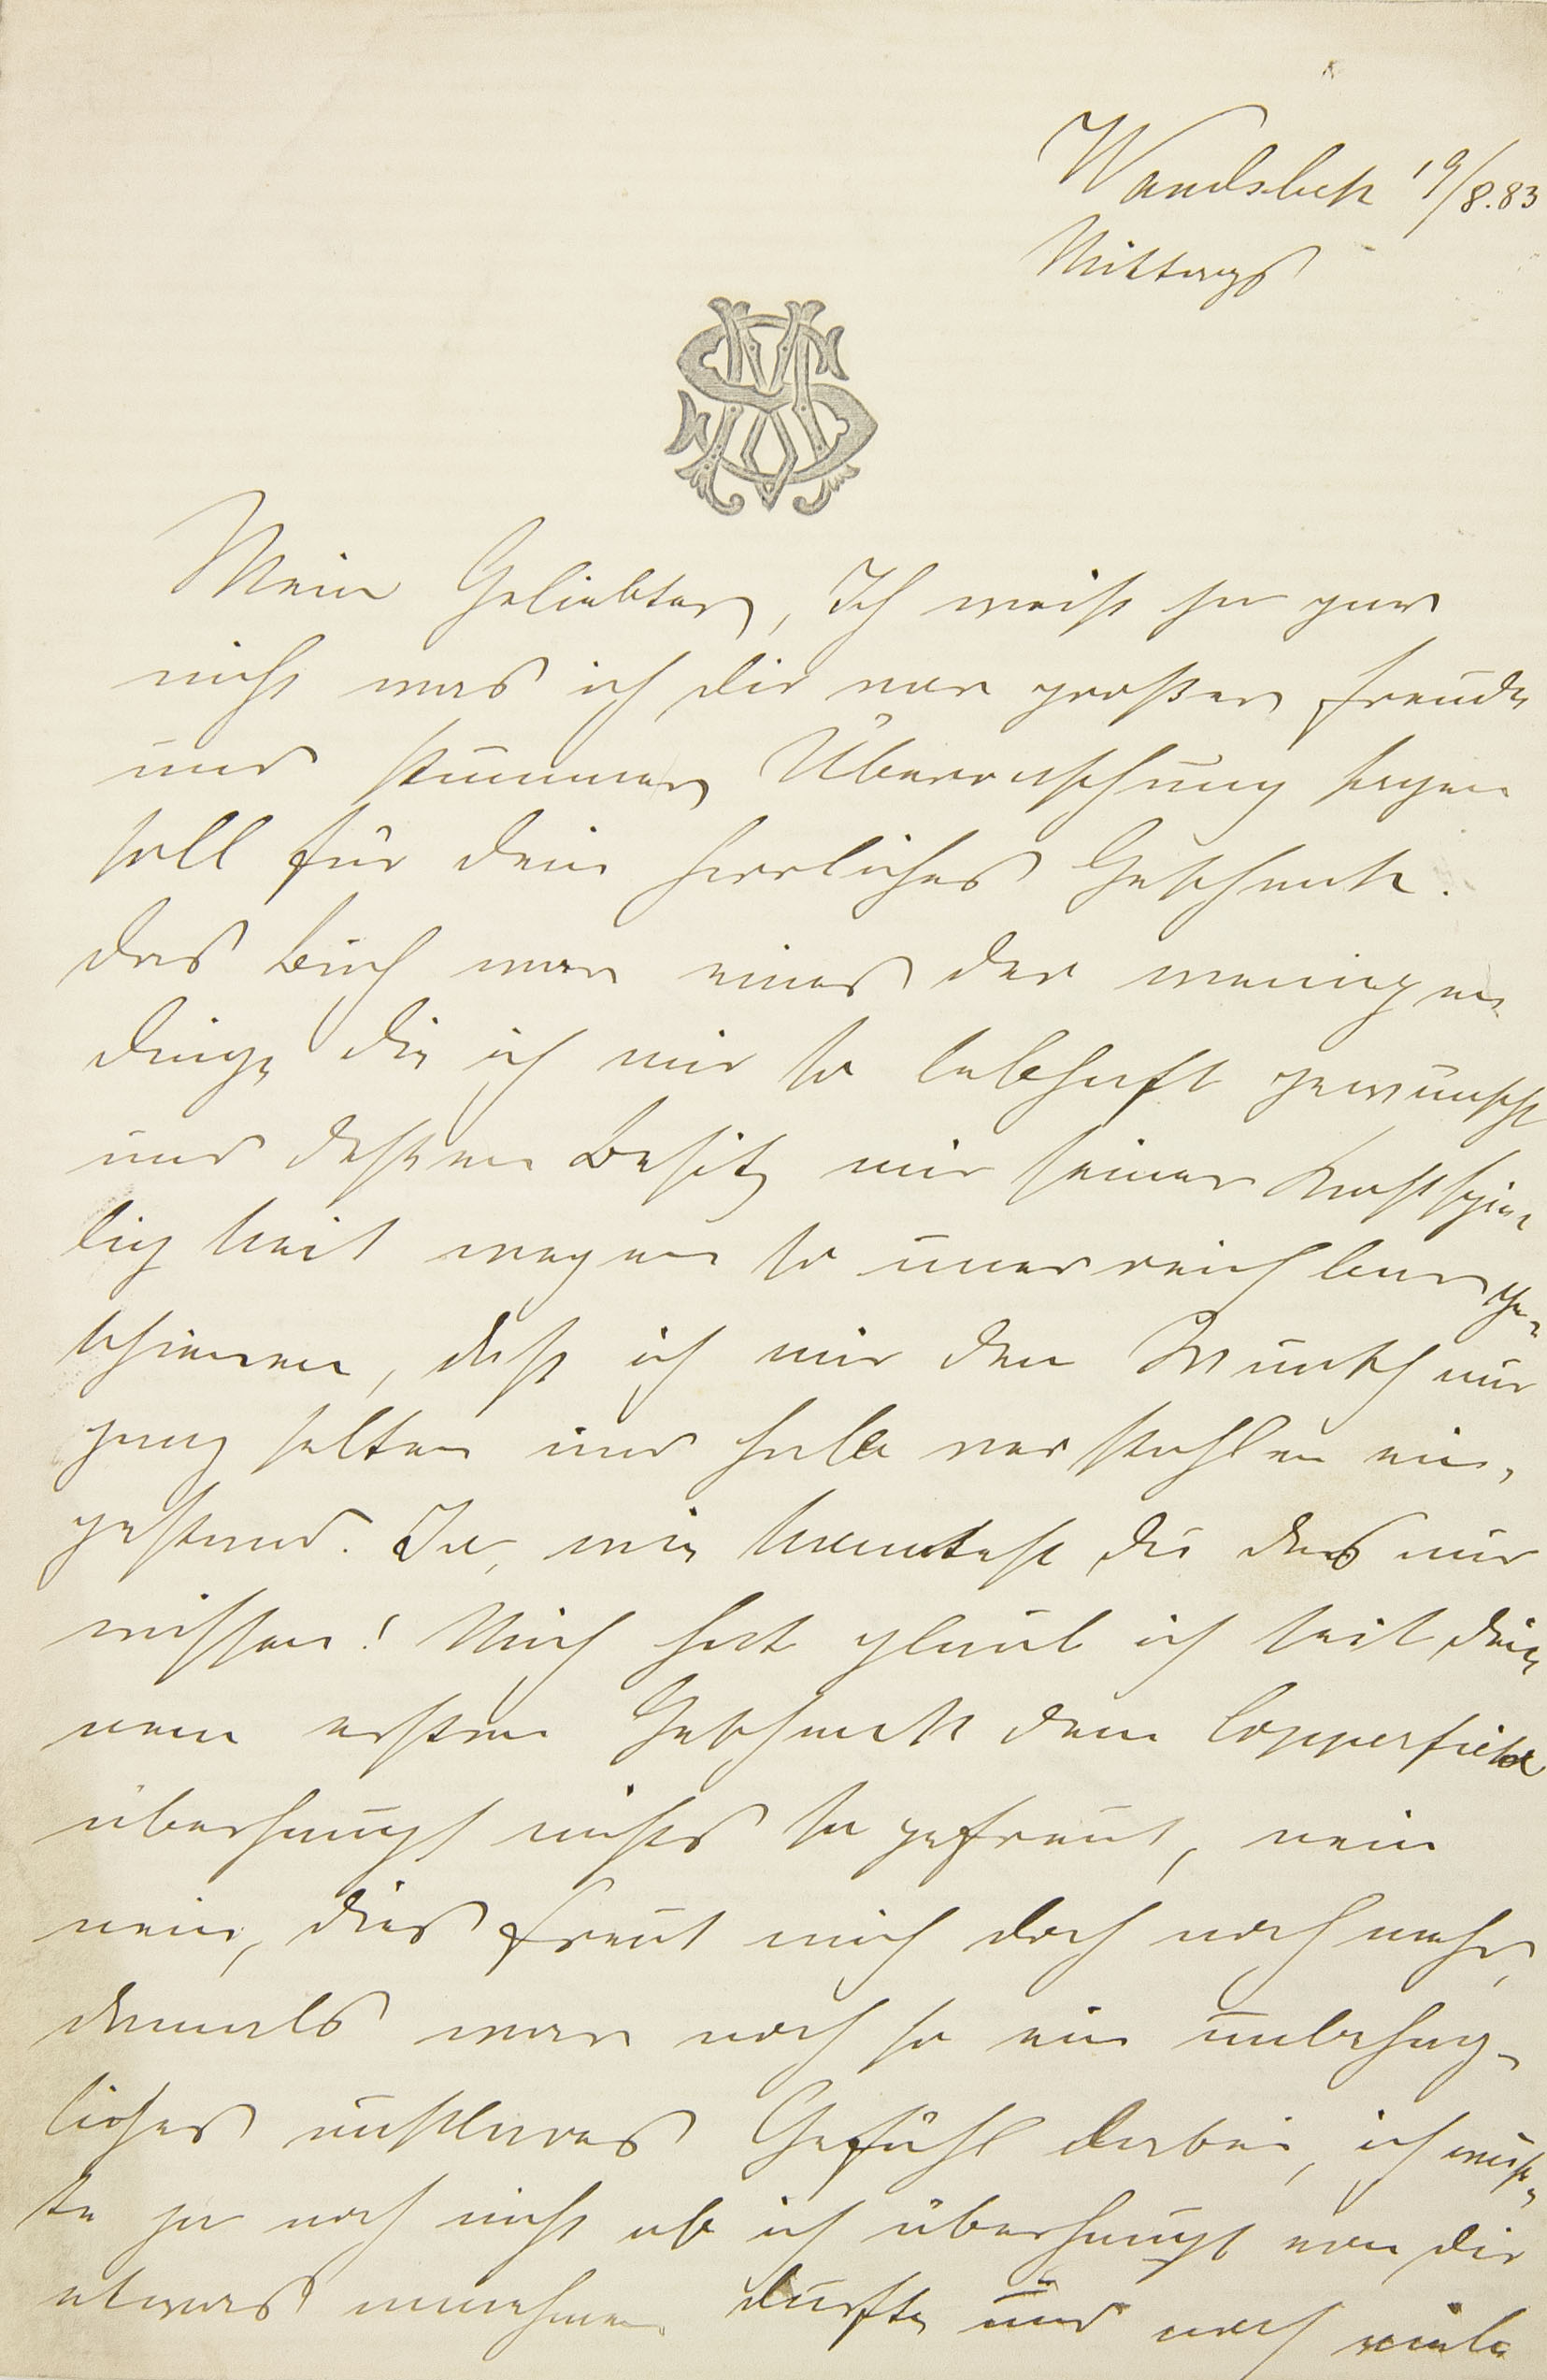 Wandsbek 19/8.83
Mittags
MS
Mein Geliebter, Ich weiß ja gar
nicht was ich dir vor großer Freude
und stummer Überraschung sagen
soll für dein herrliches Geschenk.
das Buch war eines der wenigen
dinge die ich mir so lebhaft gewünscht
und dessen Besitz mir seiner Kostspie-
ligkeit wegen so unerreichbar ge-
schienen, daß ich mir den Wunsch nur
ganz selten und halb verstohlen ein-
gestand. Ja, wie kountest du das nur
wissen! Mich hat glaub ich seit dei-
nem ersten Geschenk dem Copperfield
überhaupt nichts so gefreut, nein
nein, dies freut mich doch noch mehr,
damals war noch so ein unbehag-
liches unklares Gefühl dabei, ich wuß-
te ja noch nicht ob ich überhaupt von dir
etwas annehmen durfte und noch viele